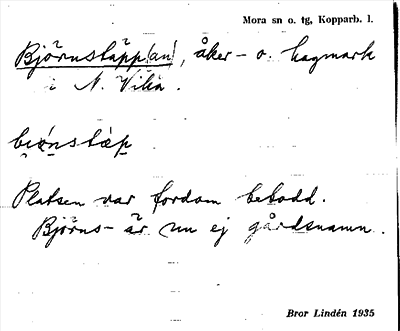 Mora sn o. tg, Kopparb. l.
Björnstäpp(an), åker- o. hagmark
i N. Vika.
Platsen var fordom bebodd.
Björns- är nu ej gårdsnamn.
Bror Lindén 1935